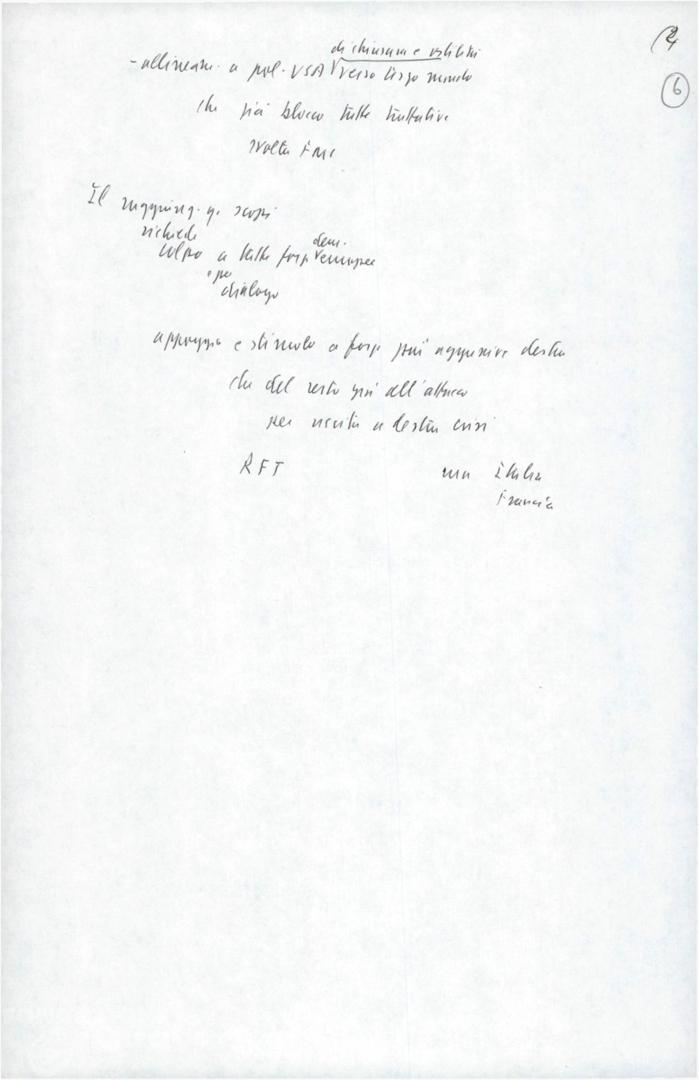 2
6
di chiusura e ostilità
- allineam. a pol. USA verso terzo mondo
che già blocca tutte trattative
svolta FMI
Il raggiung. q. scopi
richiede
colpo a tutte forze dem. europee
e pe
dialogo
appoggio e stimolo a forze più aggressive destra
che del resto già all'attacco
per uscita a destra crisi
RFT ma Italia
Francia